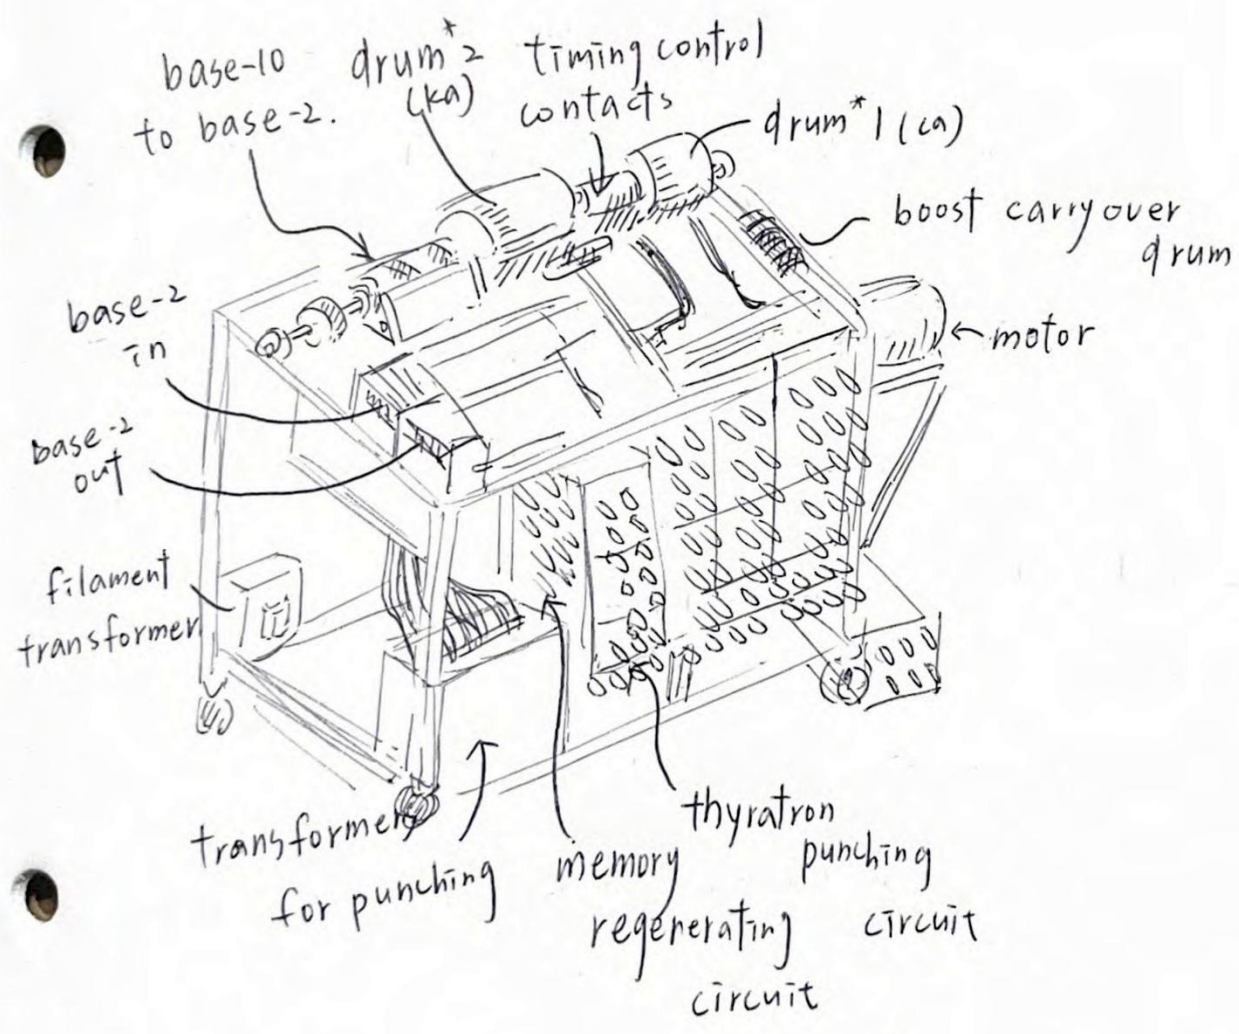 base-10
to base-2.
drum*2
(ka)
timing control
contacts
drum*1 (ca)
boost carryover
drum
base-2
in
motor
base-2
out
filament
transformer
transformer
for punching
memory
regenerating
circuit
thyratron
punching
circuit